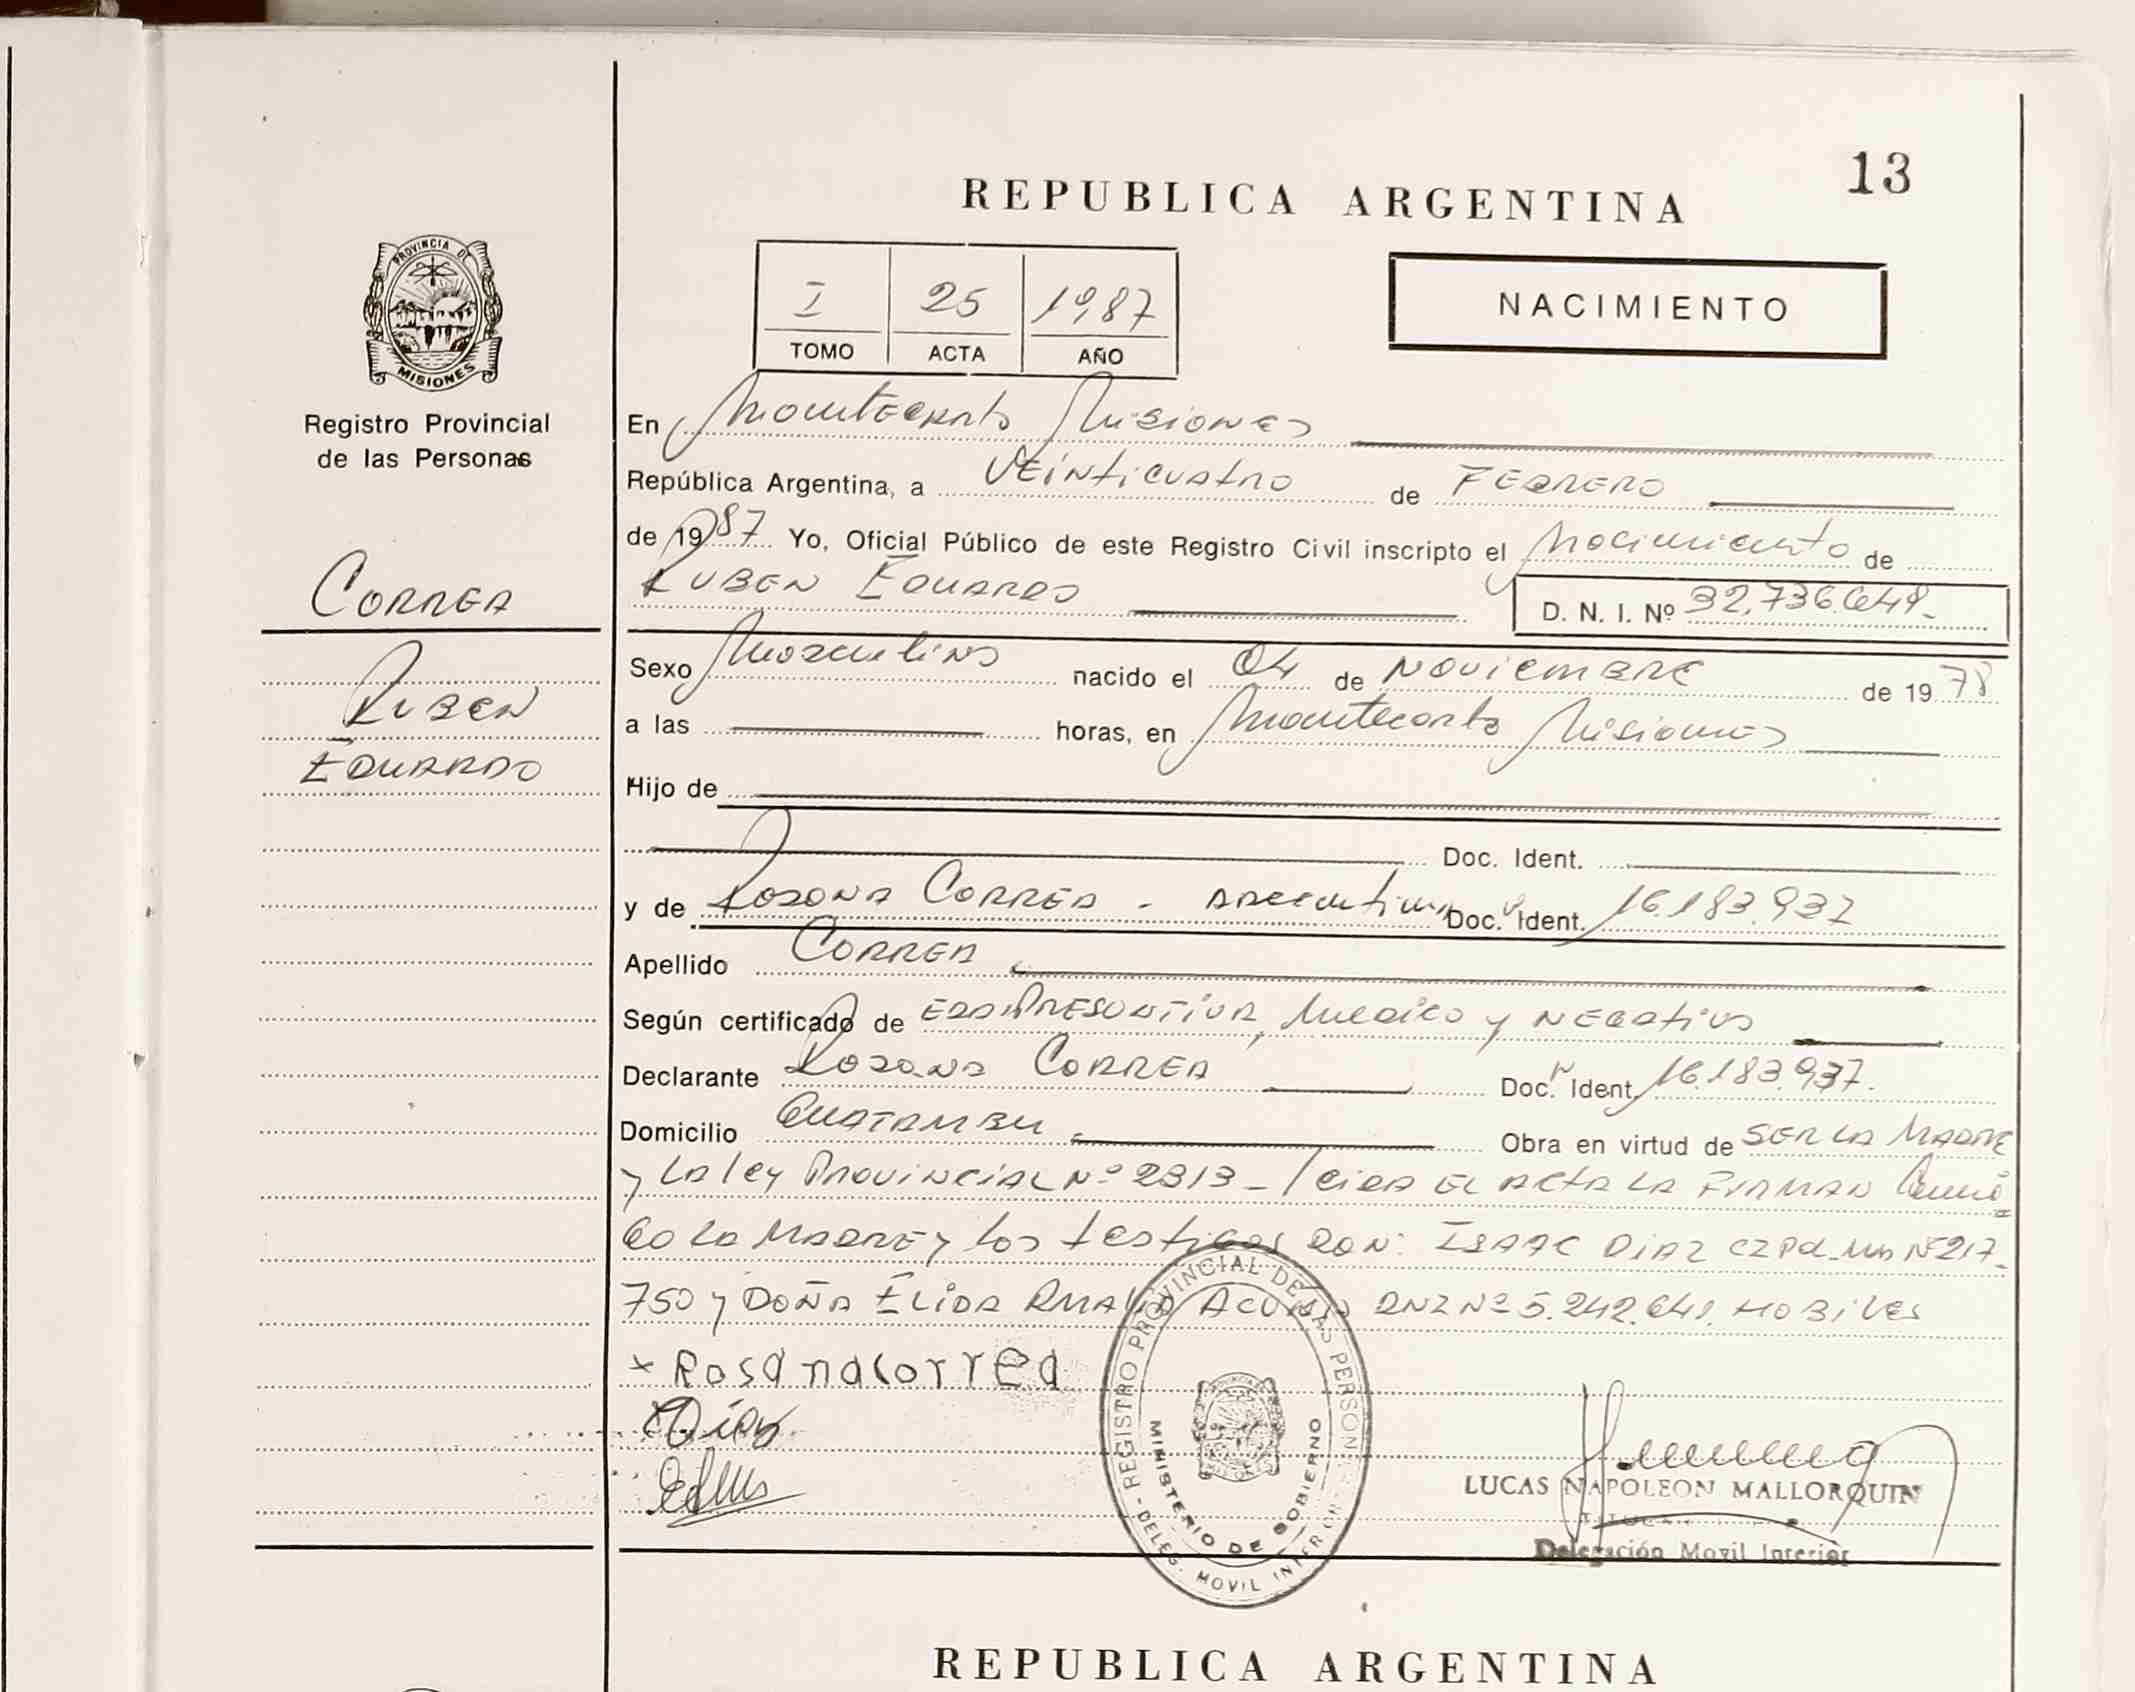 13
REPUBLICA ARGENTINA
PROVINCIA DE
MISIONES
I 25 1987
TOMO ACTA AÑO
NACIMIENTO
Registro Provincial
de las Personas
CORREA
RUBEN
EDUARDO
En Montecarlo Misiones
República Argentina, a VEINTICUATRO de FEBRERO
de 1987 Yo, Oficial Público de este Registro Civil inscripto el Nacimiento de
RUBEN EDUARDO
D. N. I. Nº 32.736.649
Sexo Masculino nacido el 04 de NOVIEMBRE de 1978
a las horas, en Montecarlo Misiones
Hijo de
Doc. Ident.
y de Rosana CORREA - ARGENTINA Doc. Ident. 16.183.937
Apellido CORREA
Según certificado de Medico y NEGATIVO
Declarante Rosana CORREA Doc. Ident. 16.183.937.
Domicilio GUATAMBU Obra en virtud de SER LA MADRE
y La ley PROVINCIAL Nº 2313 - EL ACTA LA FIRMAN
GO La MADRE y los testigos DON: ISAAC DIAZ Nº 217-
750 y DOÑA ELIDA AMALIA ACUÑA DNI Nº 5.242.641. HOBILES
x Rosana Correa
Diaz
REGISTRO PROVINCIAL DE LAS PERSONAS
MINISTERIO DE GOBIERNO
DELEG. MOVIL INTERIOR
LUCAS NAPOLEON MALLORQUIN
TITULAR
Delegación Movil Interior
REPUBLICA ARGENTINA